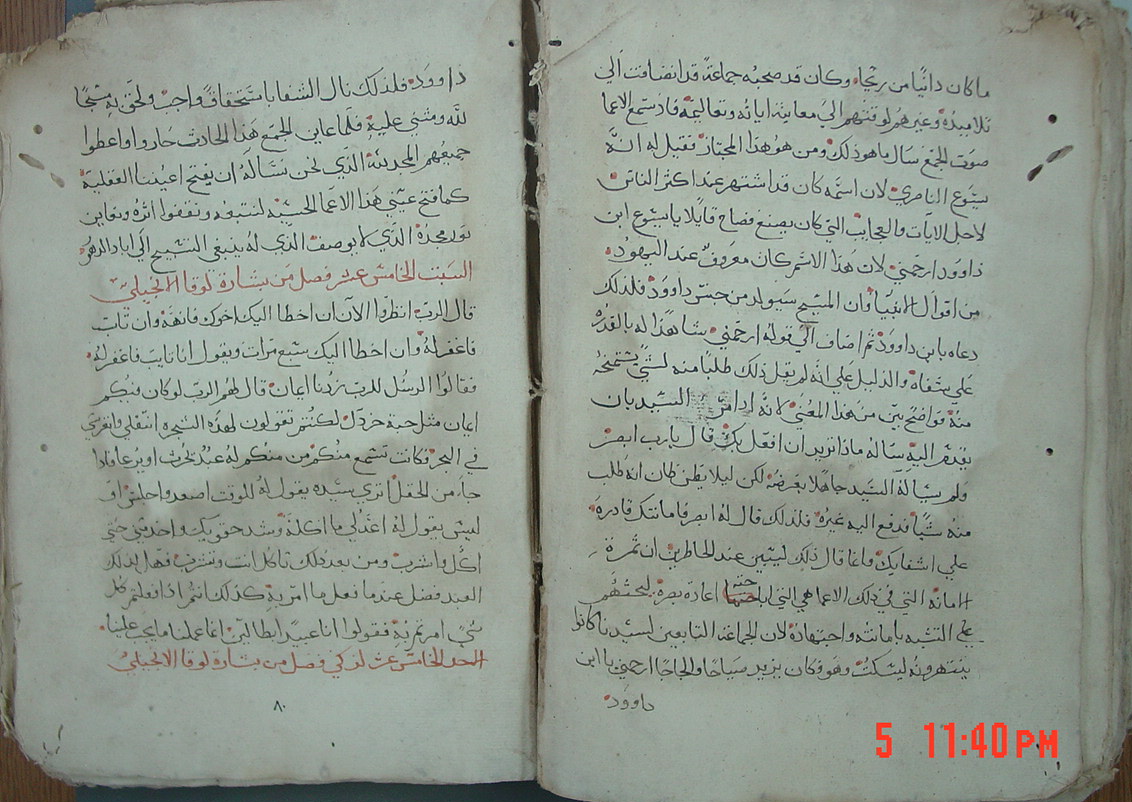 ماكان دانيًا من ريحا. وكان قد صحبه جماعة قد انضافت الي
تلاميده وغيرهم لوقتهم الي معاينة اياته وتعاليمه فاد سمع الاعما
صوت الجمع سال ما هو ذلك ومن هو هذا المجتاز فقيل له انه
يسوع الناصري لان اسمه كان قد اشتهر عند اكثر الناس
لاجل الايات والعجايب التي كان يصنع فصاح قايلا يا يسوع ابن
داوود ارحمني لان هذا الاسم كان معروف عند اليهود
من اقوال الانبيا وان المسيح سيولد من جنس داوود فلذلك
دعاه يا بن داوود ثم اضاف الي قوله ارحمني شاهدا له بالقدره
علي شفاه والدليل علي انه لم يقل ذلك طلبا منه لشي يتمنحه
منه فواضح بين من هذا المعني لانه اد امر السيد بان
يقدم اليه ساله ماذا تريد ان افعل بك قال يا رب ابصر
ولم يساله السيد جاهلا بغرضه لكن ليلا يظن ظان انه طلب
منه شيا فدفع اليه غيره فلذلك قال له ابصر فامانتك قادره
علي اشفايك فاغا قال ذلك ليتبين عند الحاظرين ان تمرة
امانه التي في ذلك الاعما هي التي اعادة بصره ليحتهم
علي التشبه بامانته واجتهاده لان الجماعه التابعين لسيدنا كانوا
ينتهرونه ليسكت وهو فكان يزيد صياحا والجاجا ارحمني يا ابن
داوود
داوود فلذلك نال الشفا باستحقاق واجب ولحق به مسبحا
لله ومثني عليه فلما عاين الجمع هذا الحادث حاروا واعطوا
جميعهم المجد لله الذي نحن نساله ان يفتح اعيننا العقلية
كما فتح عيني هذا الاعما الحسيه لنتبعه ونقفوا اثره ونعاين
نور مجده الذي لا يوصف الذي له ينبغي التسبيح الي اباد الدهور
السبت الخامس عشر فصل من بشارة لوقا الانجيلي
قال الرب انظروا الان ان اخطا اليك اخوك فانهه وان تاب
فاغفر له وان اخطا اليك سبع مرات ويقول انا تايب فاغفر له
فقالوا الرسل للرب زدنا ايمان قال لهم الرب لو كان فيكم
ايمان مثل حبة خردل لكنتم تقولون لهذه الشجره انتقلي وانغرسي
في البحر فكانت تسمع منكم من منكم له عبد يحرث او يرعا فاذا
جاء من الحقل اتري سيده يقول له للوقت اصعد واجلس او
ليس يقول له اعد لي ما اكله وشد حقويك واخدمني حتي
اكل واشرب ومن بعد ذلك تاكل انت وتشرب فهل لذلك
العبد فضل عندما فعل ما امر به كذلك انتم اذا فعلتم كل
شي امرتم به فقولوا انا عبيد ابطالين انما عملنا ما يجب علينا
الاحد الخامس عشر لزكي فصل من بشارة لوقا الانجيلي
٨٠
5 11:40 PM